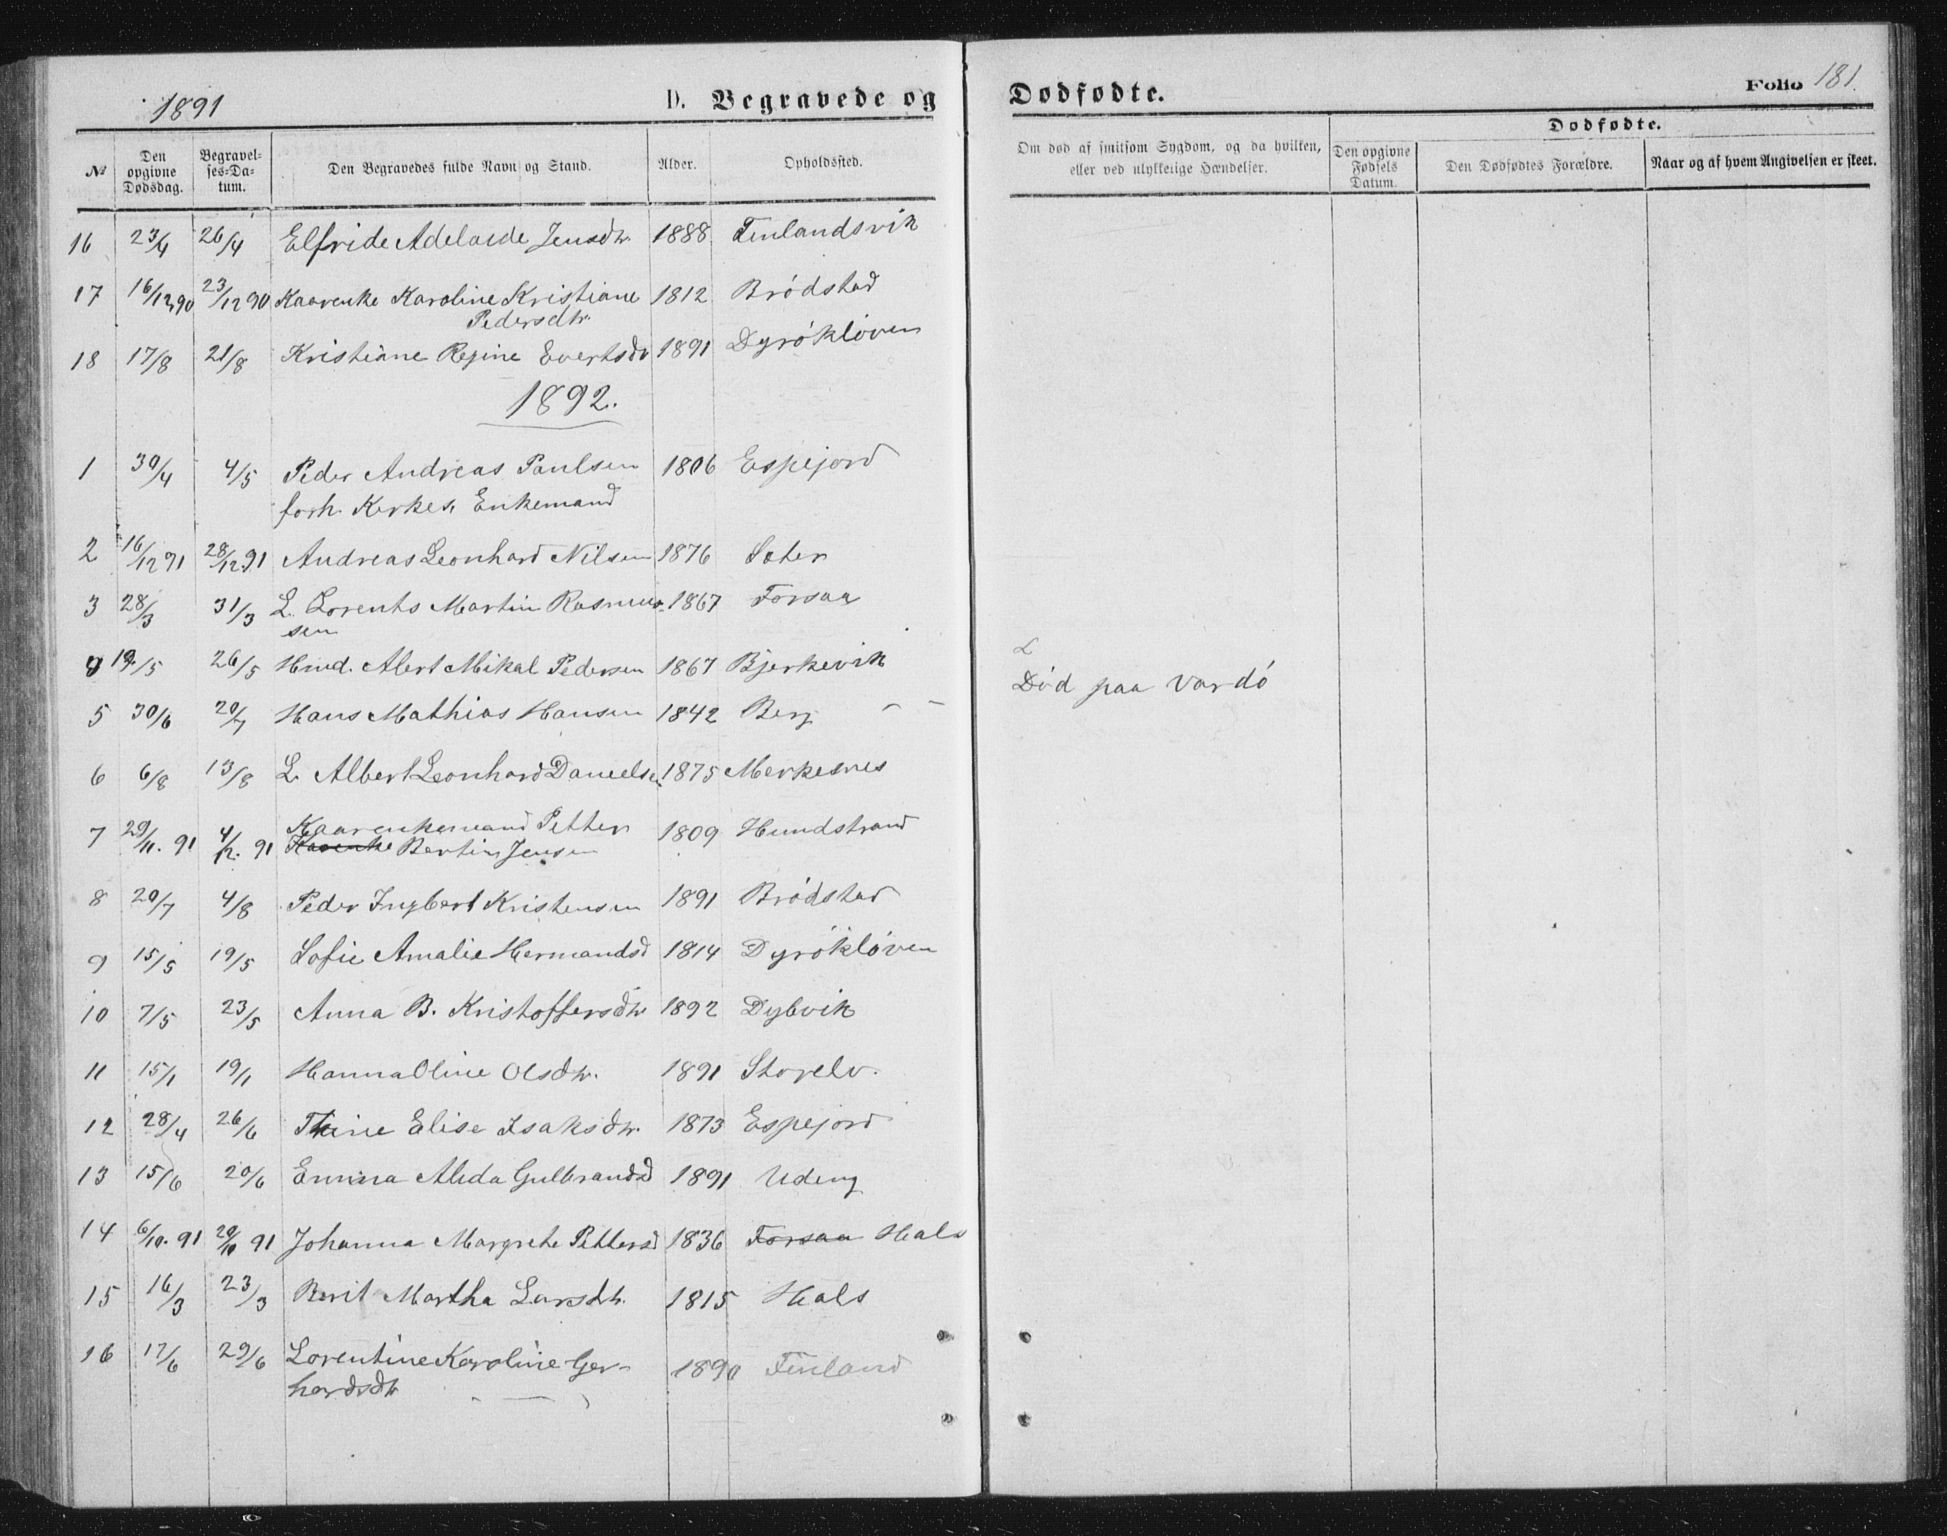 1891
D. Begravede og
Dødfødte.
Folio 181.
№
Den opgivne Dødsdag.
Begravelses-Datum.
Den Begravedes fulde Navn og Stand.
Alder.
Opholdssted.
Om død af smitsom Sygdom, og da hvilken, eller ved ulykkelige Hændelser.
Dødfødte.
Den opgivne Fødsels Datum.
Den Dødfødtes Forældre.
Naar og af hvem Angivelsen er skeet.
16 23/4 26/4 Elfride Adelaide Jensdtr. 1888 Finlandsvik
17 16/12 90 23/12 90 Kaarenke Karoline Kristiane 1812 Brødstad
Pedersdtr.
18 17/8 21/8 Kristiane Regine Evertsdtr 1891 Dyrökløven
1892.
1 30/4 4/5 Peder Andreas Paulsen 1806 Espejord
forh. Kirkes. Enkemand
2 16/12 91 28/12 91 Andreas Leonhard Nilsen 1876 Sæter
3 28/3 31/3 L. Lorents Martin Rasmus- 1867 Forsaa
sen
4 19/5 26/5 Hmd. Albert Mikal Pedersen 1867 Bjerkevik
Död paa Vardö
5 30/6 20/7 Hans Mathias Hansen 1842 Berg
6 6/8 13/8 L. Albert Leonhard Danielsen 1875 Merkesnes
7 29/11. 91 4/12. 91 Kaarenkemand Petter 1809 Hundstrand
Kaarenke Bertin Jensen
8 20/7 4/8 Peder Ingbert Kristensen 1891 Brödstad
9 15/5 19/5 Sofie Amalie Hermandsd 1814 Dyrökløven
10 7/5 23/5 Anna B. Kristoffersdtr 1892 Dybvik
11 15/1 19/1 Hanna Oline Olsdtr. 1891 Storelv.
12 28/4 26/6 Trine Elise Isaksdtr. 1873 Espejord
13 15/6 20/6 Emma Alida Gulbrandsd 1891 Udeng
14 6/10. 91 20/10 91 Johanna Margrete Pettersd 1836 Forsaa Hals
15 16/3 23/3 Berit Martha Larsdtr. 1815 Hals
16 17/6 29/6 Lorentine Karoline Ger- 1890 Finland
hardsdtr